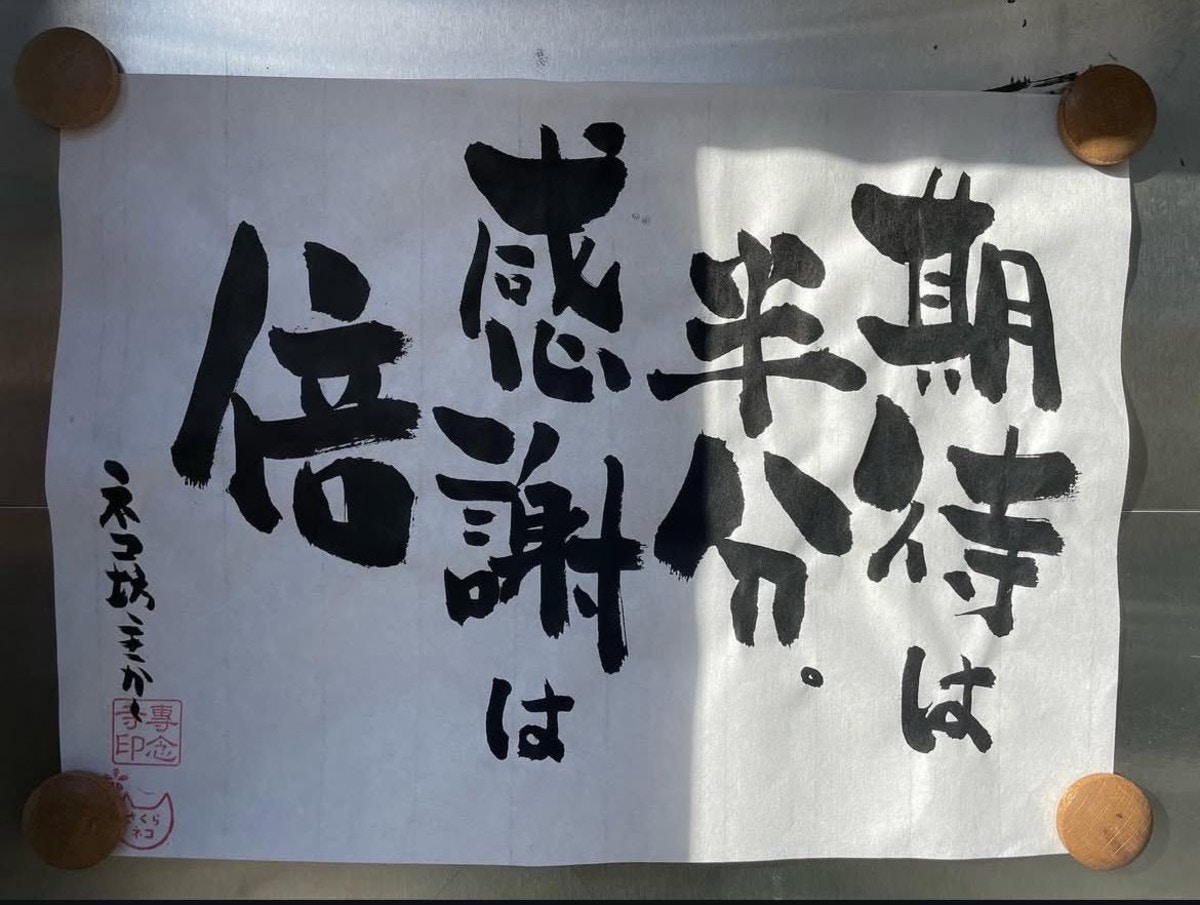 期待は
半分。
感謝は
倍
ネコ坊主かく
專念
寺印
さくら
ネコ